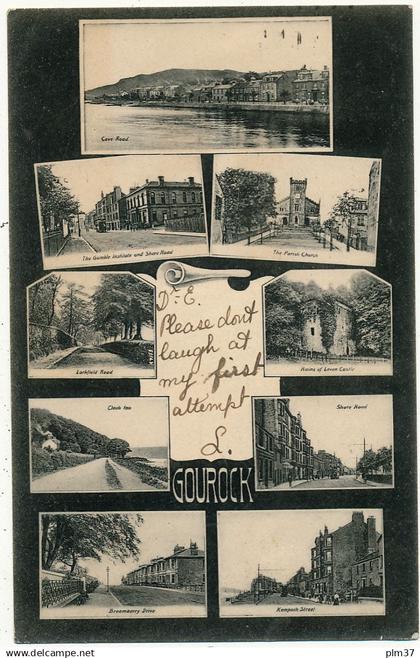 Cove Road
The Gamble Institute and Shore Road
The Parish Church
Dr. E.
Please dont
laugh at
my first
attempt
L.
Larkfield Road
Ruins of Leven Castle
Cloch Inn
Shore Road
GOUROCK
Broomberry Drive
Kempoch Street
plm37
www.delcampe.net